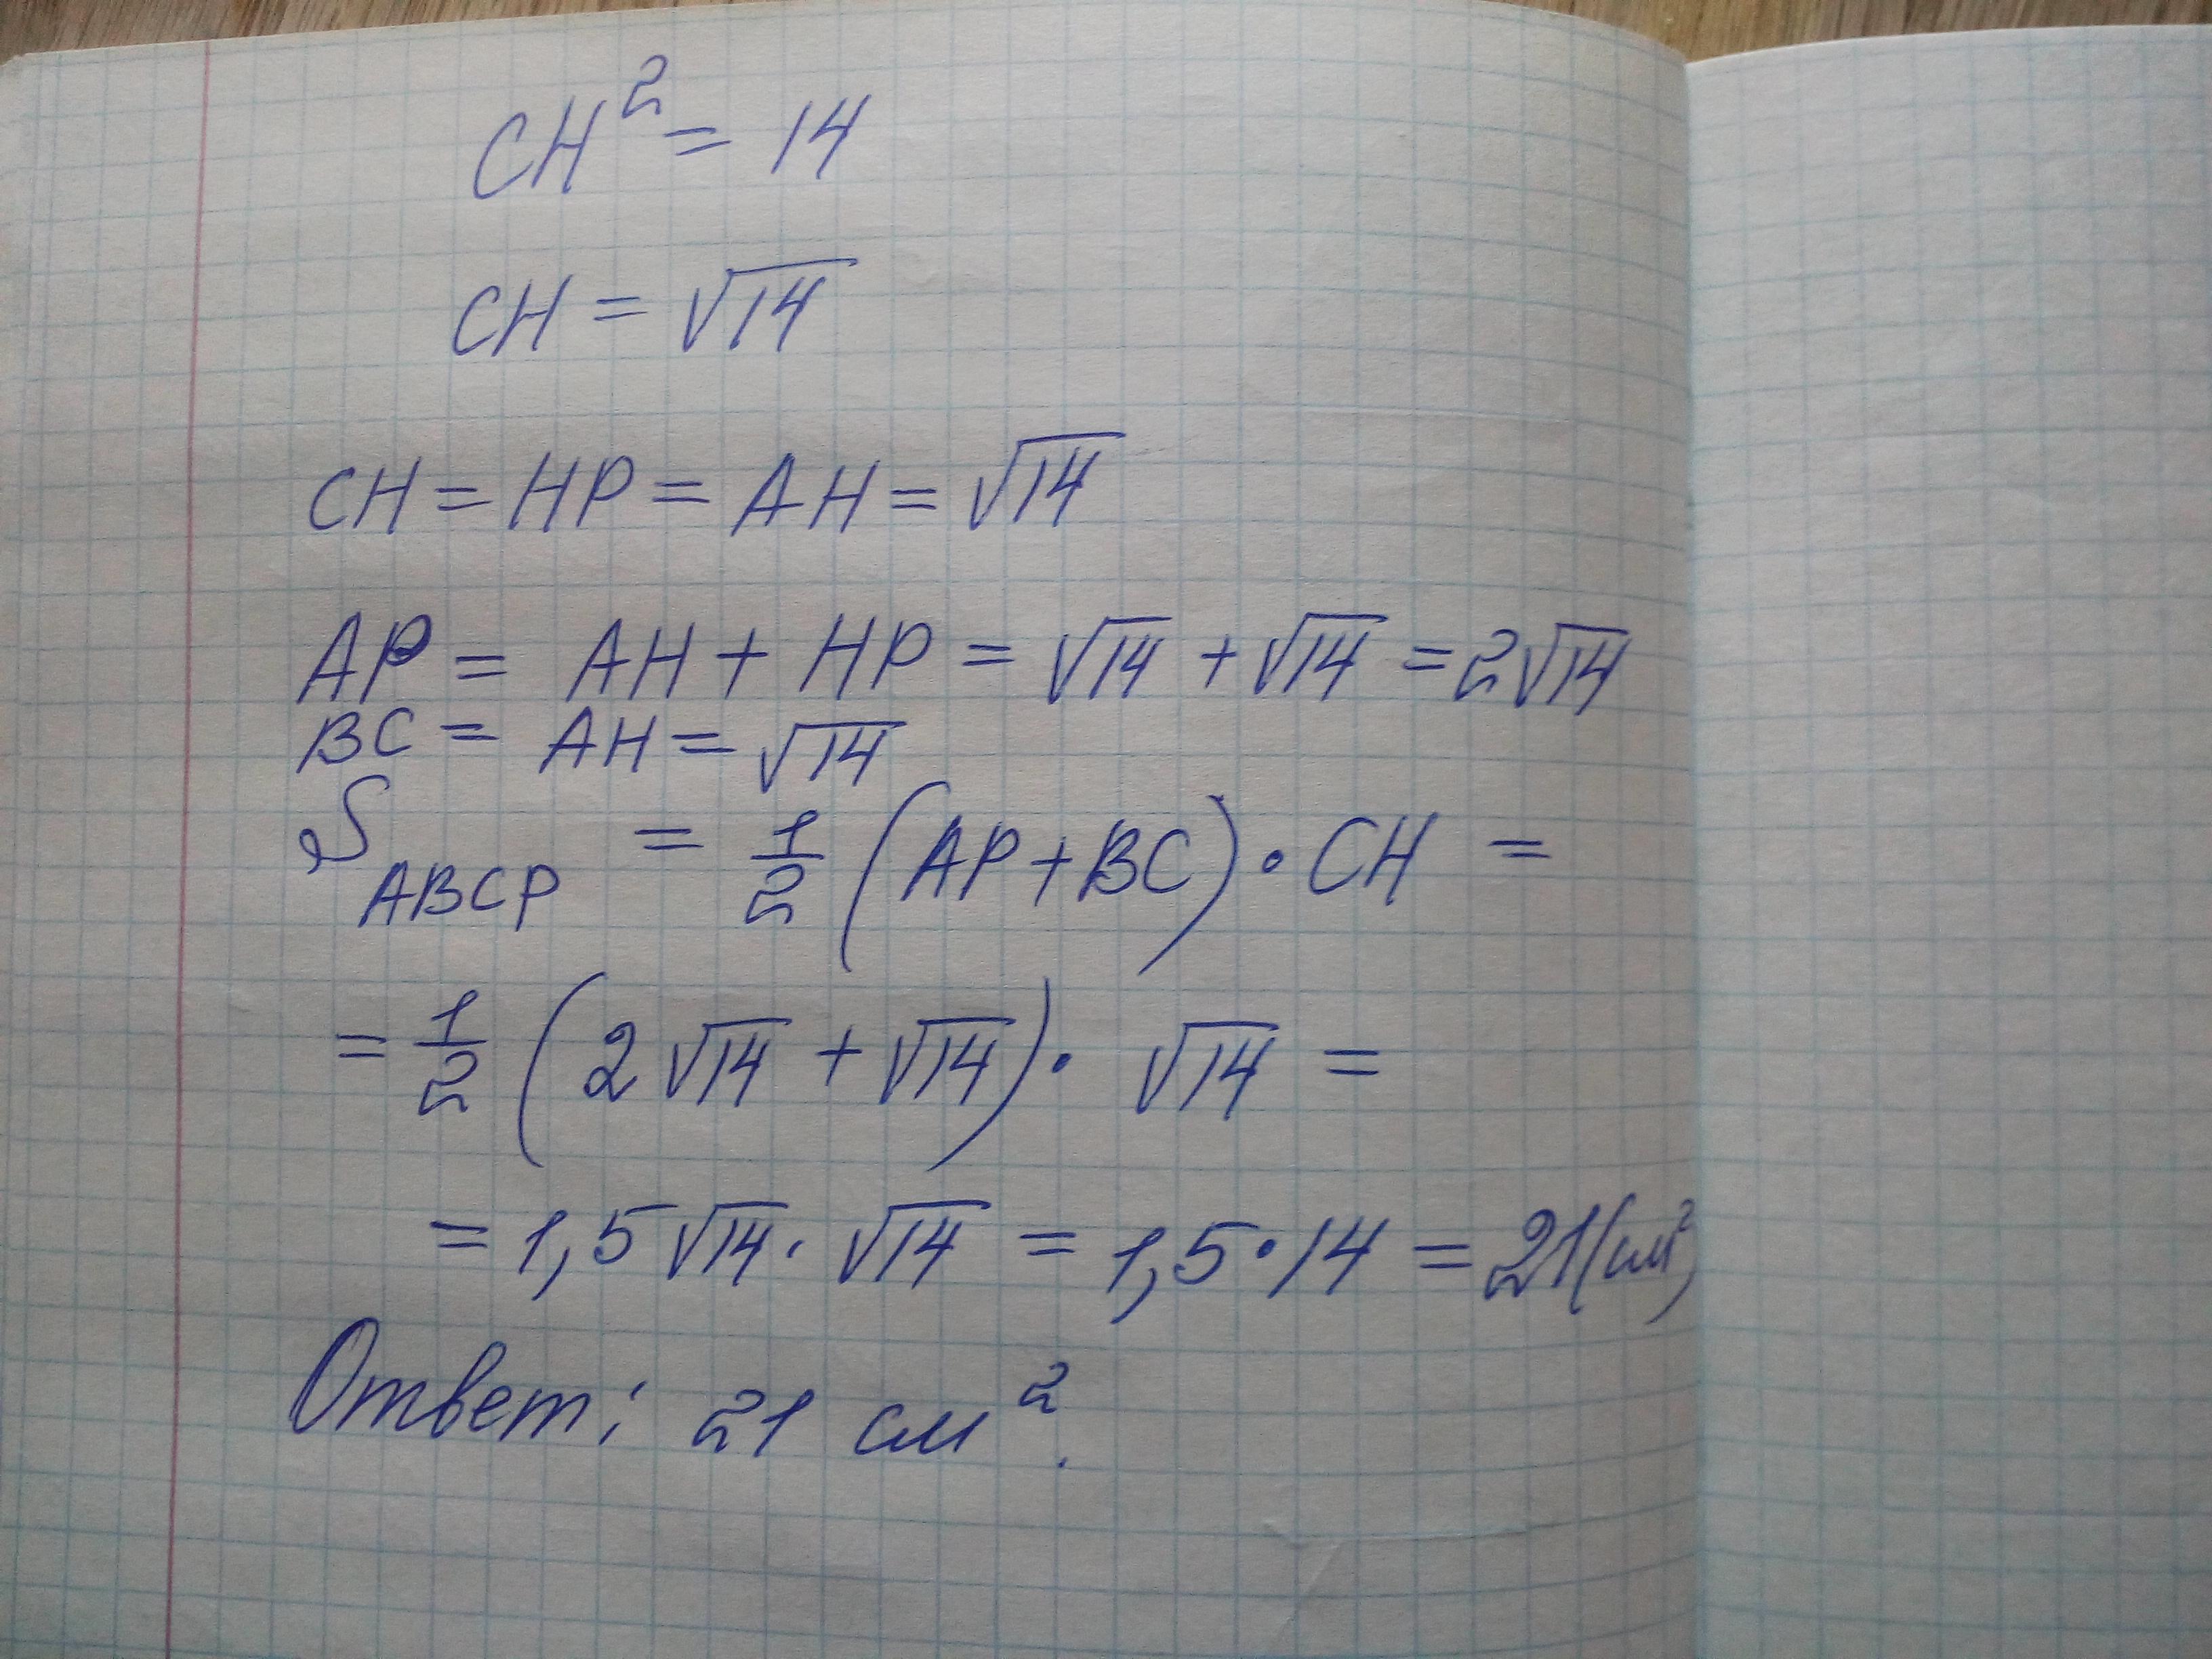 CH² = 14
CH = √14
CH = HP = AH = √14
AP = AH + HP = √14 + √14 = 2√14
BC = AH = √14
S ABCP = 1/2 (AP + BC) · CH =
= 1/2 (2√14 + √14) · √14 =
= 1,5√14 · √14 = 1,5 · 14 = 21(см²)
Ответ: 21 см².